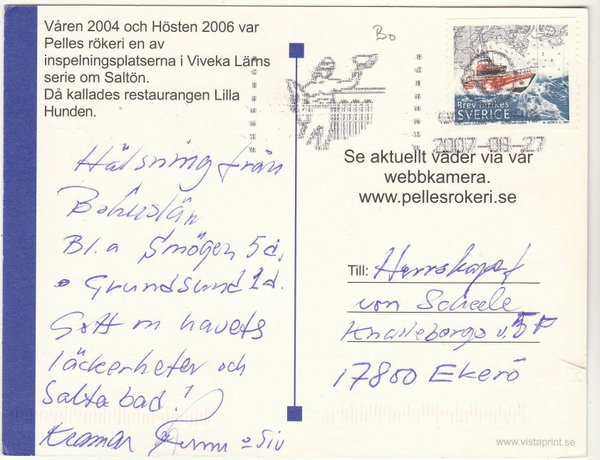 Våren 2004 och Hösten 2006 var
Pelles rökeri en av
inspelningsplatserna i Viveka Lärns
serie om Saltön.
Då kallades restaurangen Lilla
Hunden.
Bo
Brev Inrikes
SVERIGE
2007-08-27
Hälsning från
Bohuslän
Bl.a Smögen 5d.
Grundsund 1d.
Gott m havets
läckerheter och
Salta bad!
Kramar
Siv
Se aktuellt väder via vår
webbkamera.
www.pellesrokeri.se
Till: Herrskapet
von Scheele
17800 Ekerö
www.vistaprint.se